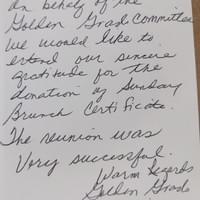 On behalf of the
Golden Grad Committee
We would like to
extend our sincere
gratitude for the
donation of Sunday
Brunch Certificate.
The reunion was
Very successful.
Warm Regards
Golden Grads